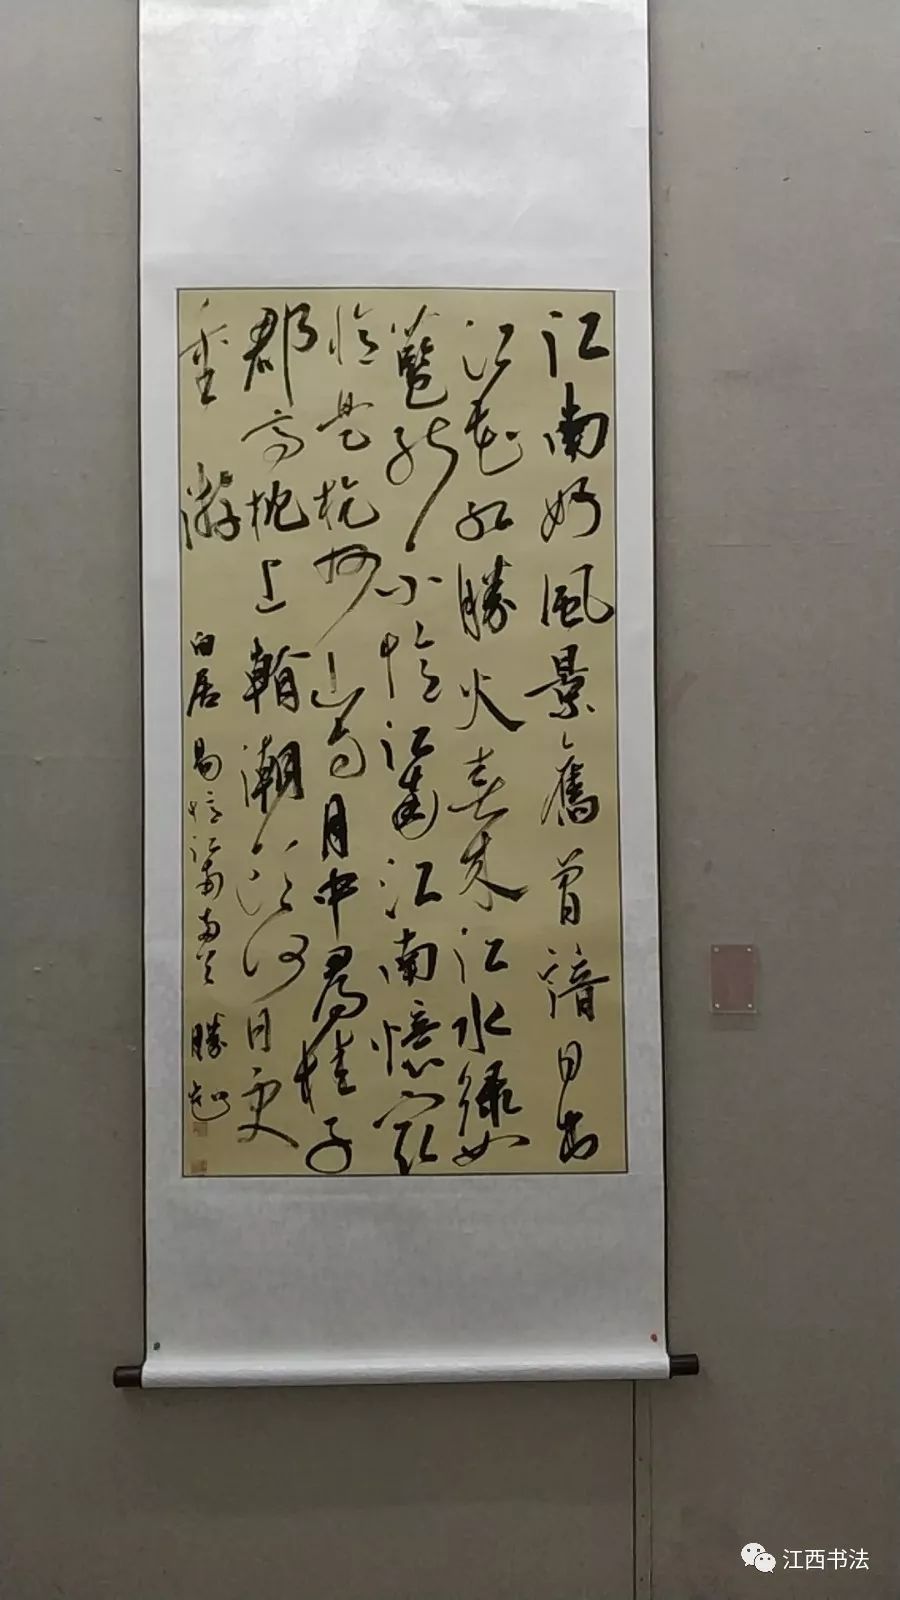 江南好風景舊曾諳日出
江花紅勝火春來江水緑如
藍能不憶江南江南憶最
憶是杭州山寺月中尋桂子
郡亭枕上看潮頭何日更
重游
白居易憶江南二首 勝
江西书法